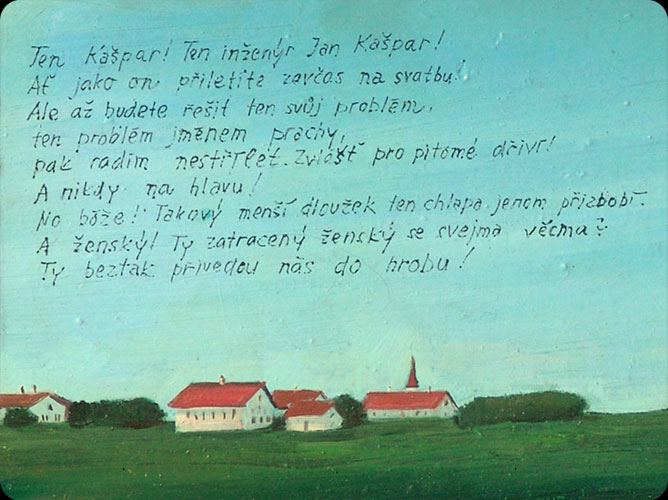 Ten Kašpar! Ten inženýr Jan Kašpar!
Ať jako on přiletíte zavčas na svatbu!
Ale až budete řešit ten svůj problém,
ten problém jménem prachy,
pak radím nestřílet. Zvlášť pro pitomé dřívr!
A nikdy na hlavu!
No bóže! Takový menší dloužek ten chlapa jenom přizbobí.
A ženský! Ty zatracený ženský se svejma věcma?
Ty beztak přivedou nás do hrobu!